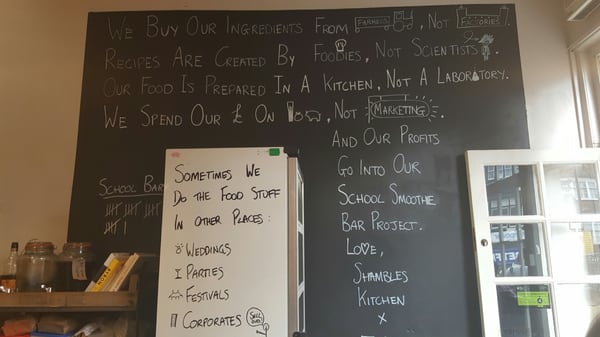 We Buy Our Ingredients From FARMERS, Not FACTORIES.
Recipes Are Created By Foodies, Not Scientists.
Our Food Is Prepared In A Kitchen, Not A Laboratory.
We Spend Our £ On , Not MARKETING.
And Our Profits
Go Into Our
School Smoothie
Bar Project.
Love,
Shambles
Kitchen
x
School Bar
Sometimes We
Do The Food Stuff
In Other Places:
Weddings
Parties
Festivals
Corporates